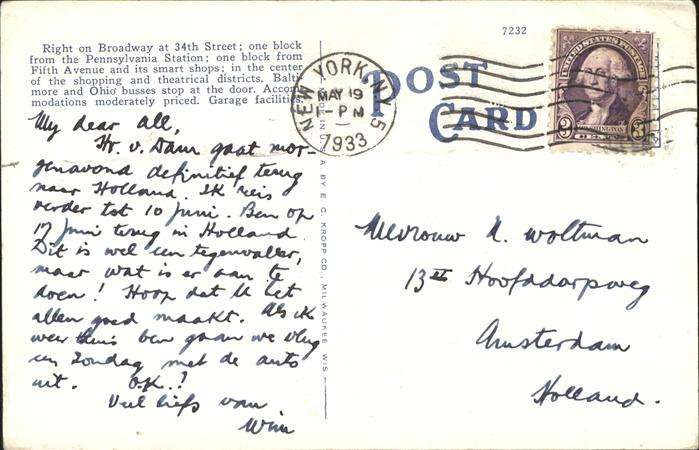 Right on Broadway at 34th Street; one block
from the Pennsylvania Station; one block from
Fifth Avenue and its smart shops; in the center
of the shopping and theatrical districts. Balti-
more and Ohio busses stop at the door. Accom-
modations moderately priced. Garage facilities.
My dear all,
Hr. v. Dam gaat mor-
genavond definitief terug
naar Holland. Ik reis
verder tot 10 juni. Ben op
17 juni terug in Holland
Dit is wel een tegenvaller,
maar wat is er aan te
doen! Hoop dat U het
allen goed maakt. Als ik
weer thuis ben gaan we vlug
een Zondag met de auto
uit. O.K.?
Veel liefs van
Wim
7232
POST
CARD
NEW YORK, N.Y. 5
MAY 19
1-PM
1933
UNITED STATES POSTAGE
3 WASHINGTON 3
E. C. KROPP CO., MILWAUKEE, WIS
Mevrouw N. Woltman
13 II Hoofddorpweg
Amsterdam
Holland.